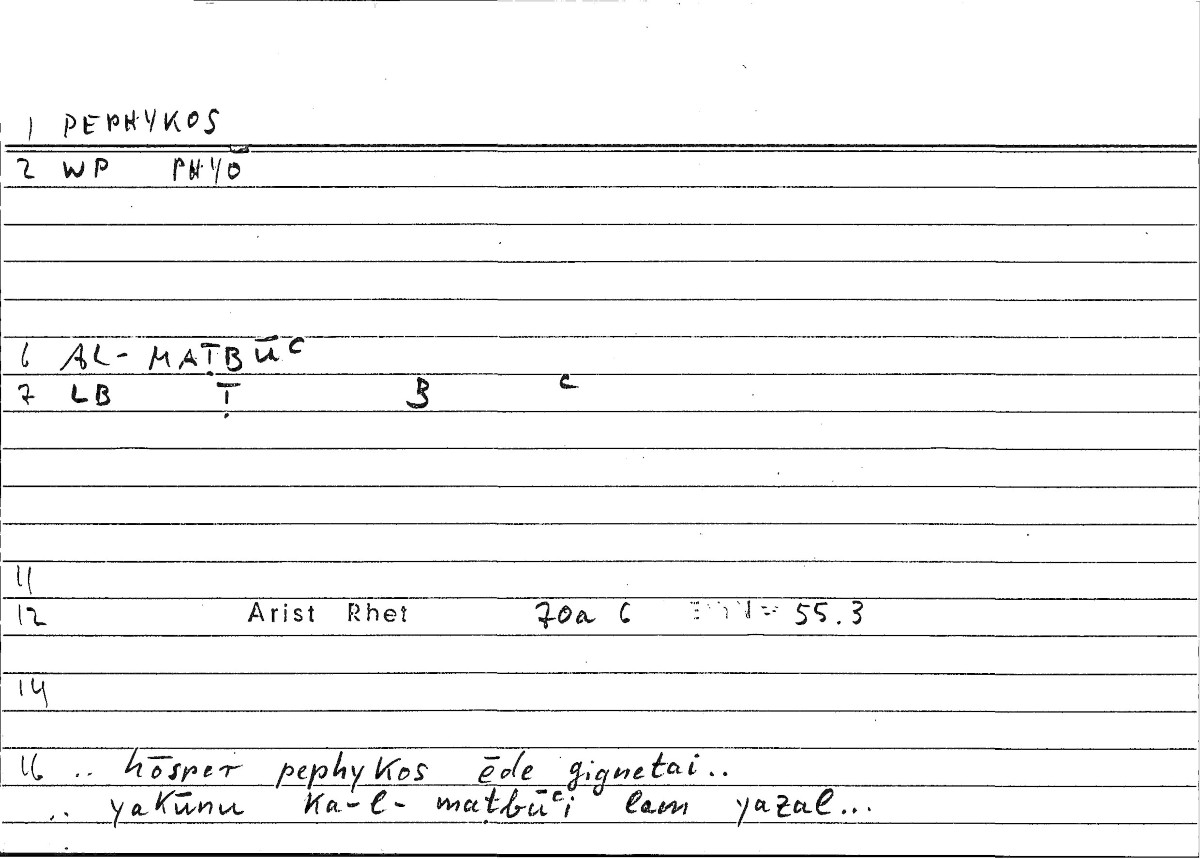 1 PEPHYKOS
2 WP PHYŌ
6 AL-MAṬBŪC
7 LB Ṭ B C
11
12 Arist Rhet 70a 6 55.3
14
16 .. hōsper pephykos ēde gignetai..
.. yakūnu ka-l-maṭbūci lam yazal...